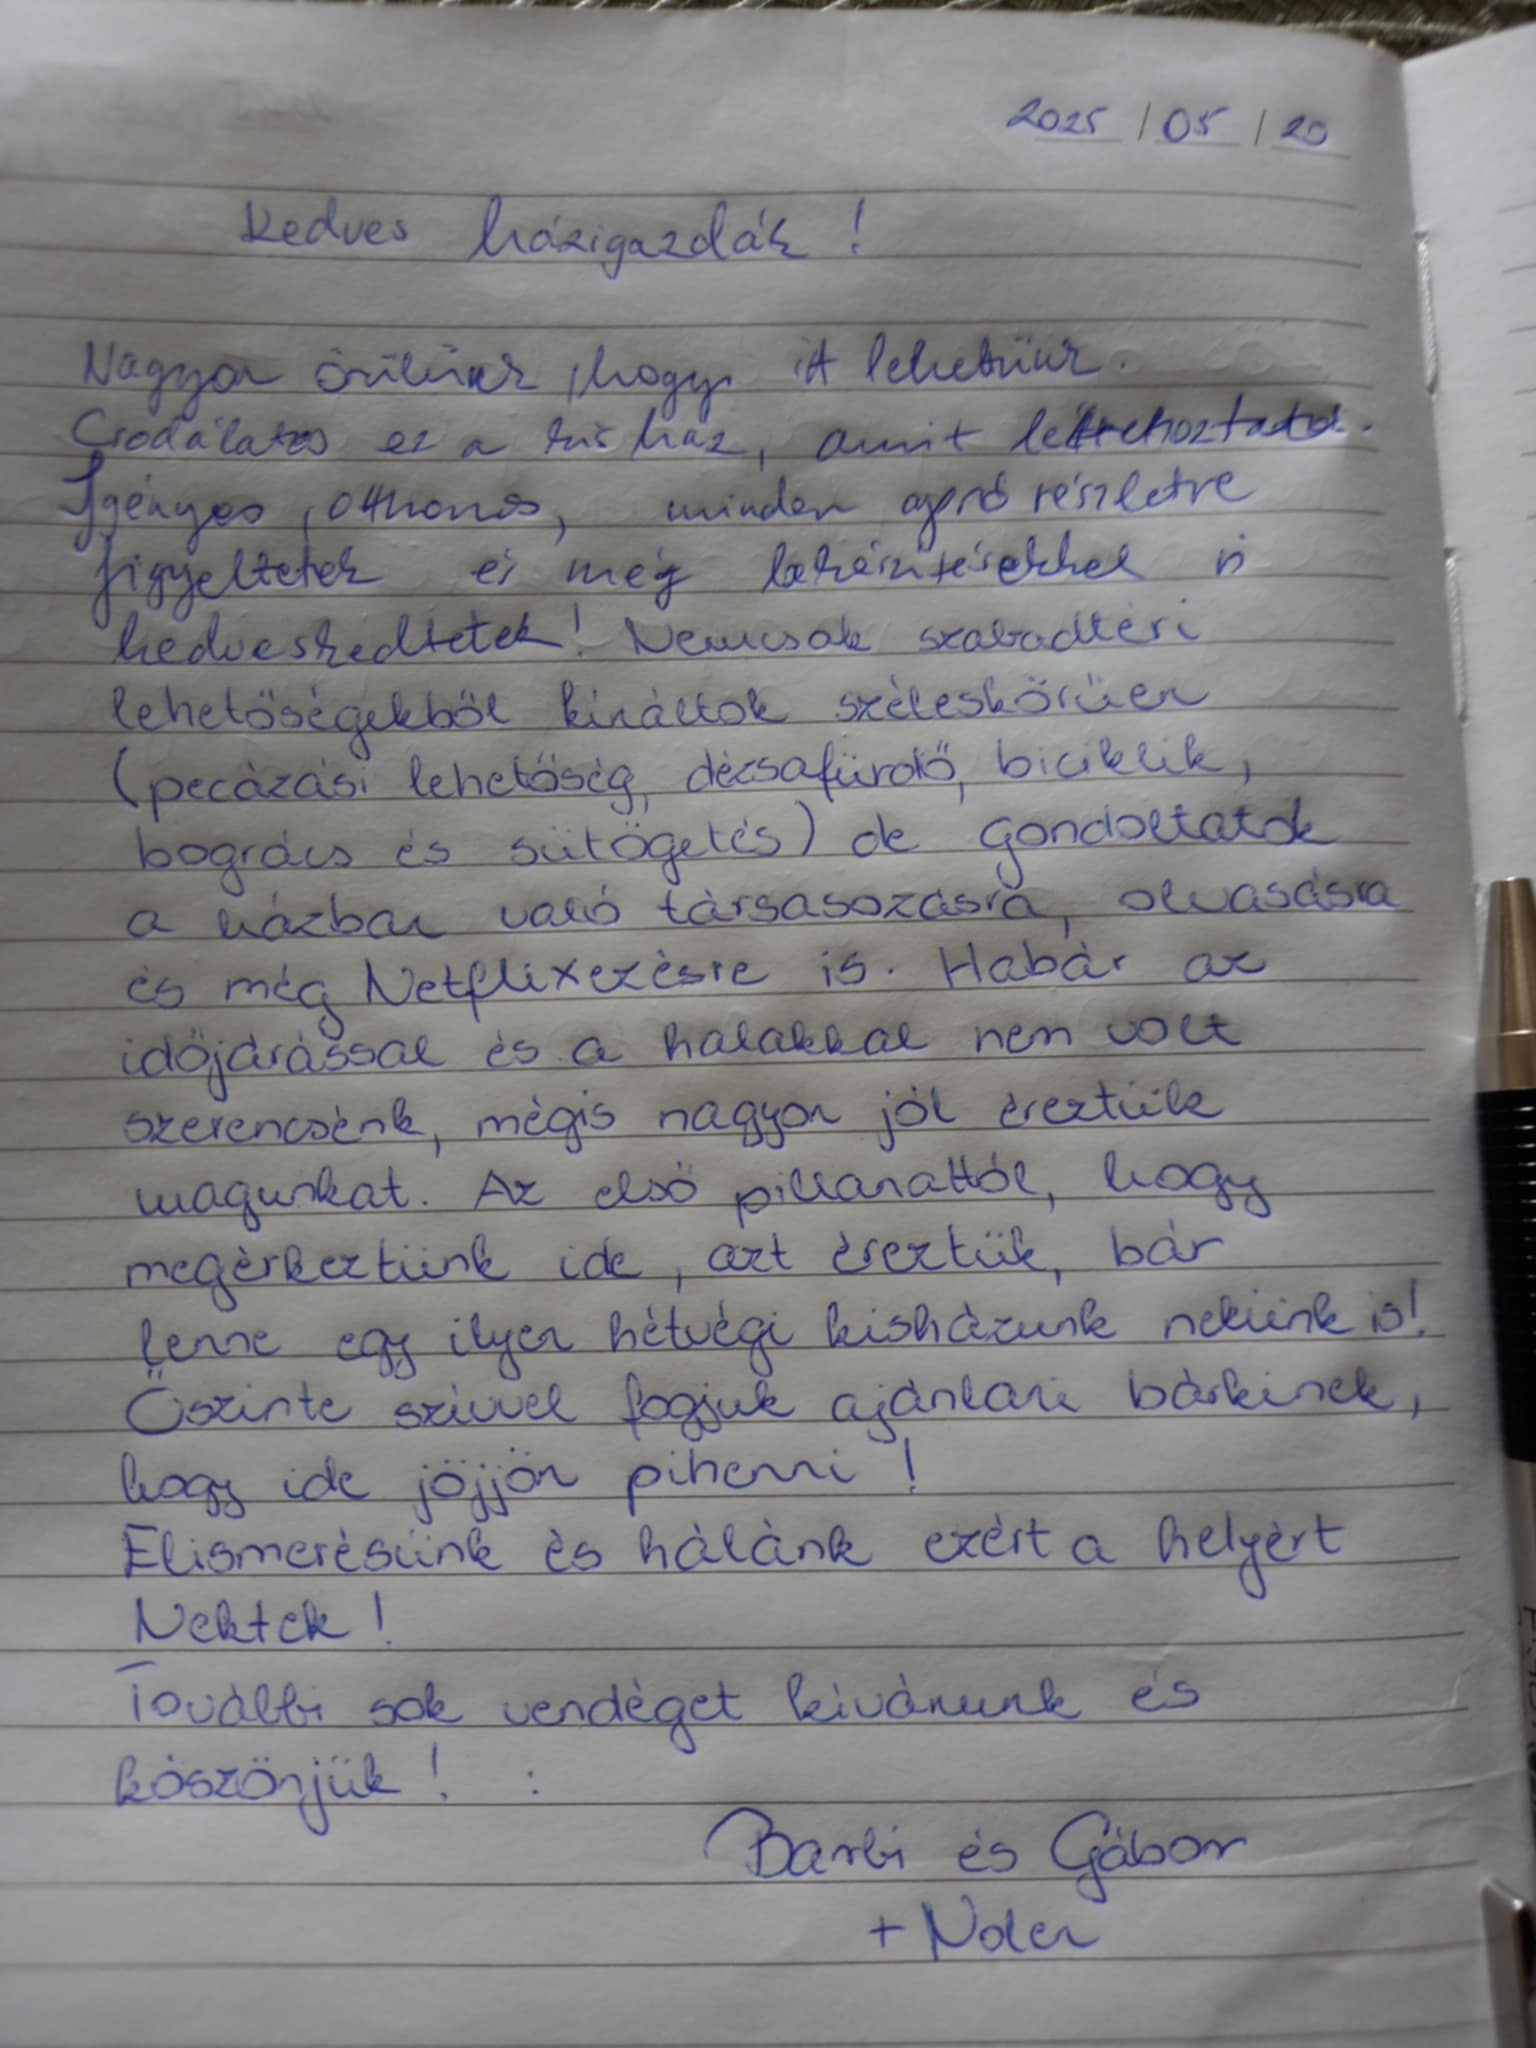 2025 / 05 / 20
Kedves házigazdák!
Nagyon örülünk, hogy itt lehetünk.
Csodálatos ez a kis ház, amit létrehoztatok.
Igényes, otthonos, minden apró részletre
figyeltetek és még bekészítésekkel is
kedveskedtetek! Nemcsak szabadtéri
lehetőségekből kínáltok széleskörűen
(pecázási lehetőség, dézsafürdő, biciklik,
bogrács és sütögetés) de gondoltatok
a házban való társasozásra, olvasásra
és még Netflixezésre is. Habár az
időjárással és a halakkal nem volt
szerencsénk, mégis nagyon jól éreztük
magunkat. Az első pillanattól, hogy
megérkeztünk ide, azt éreztük, bár
lenne egy ilyen hétvégi kisházunk nekünk is!
Őszinte szívvel fogjuk ajánlani bárkinek,
hogy ide jöjjön pihenni!
Elismerésünk és hálánk ezért a helyért
Nektek!
További sok vendéget kívánunk és
köszönjük! :
Barbi és Gábor
+ Noler